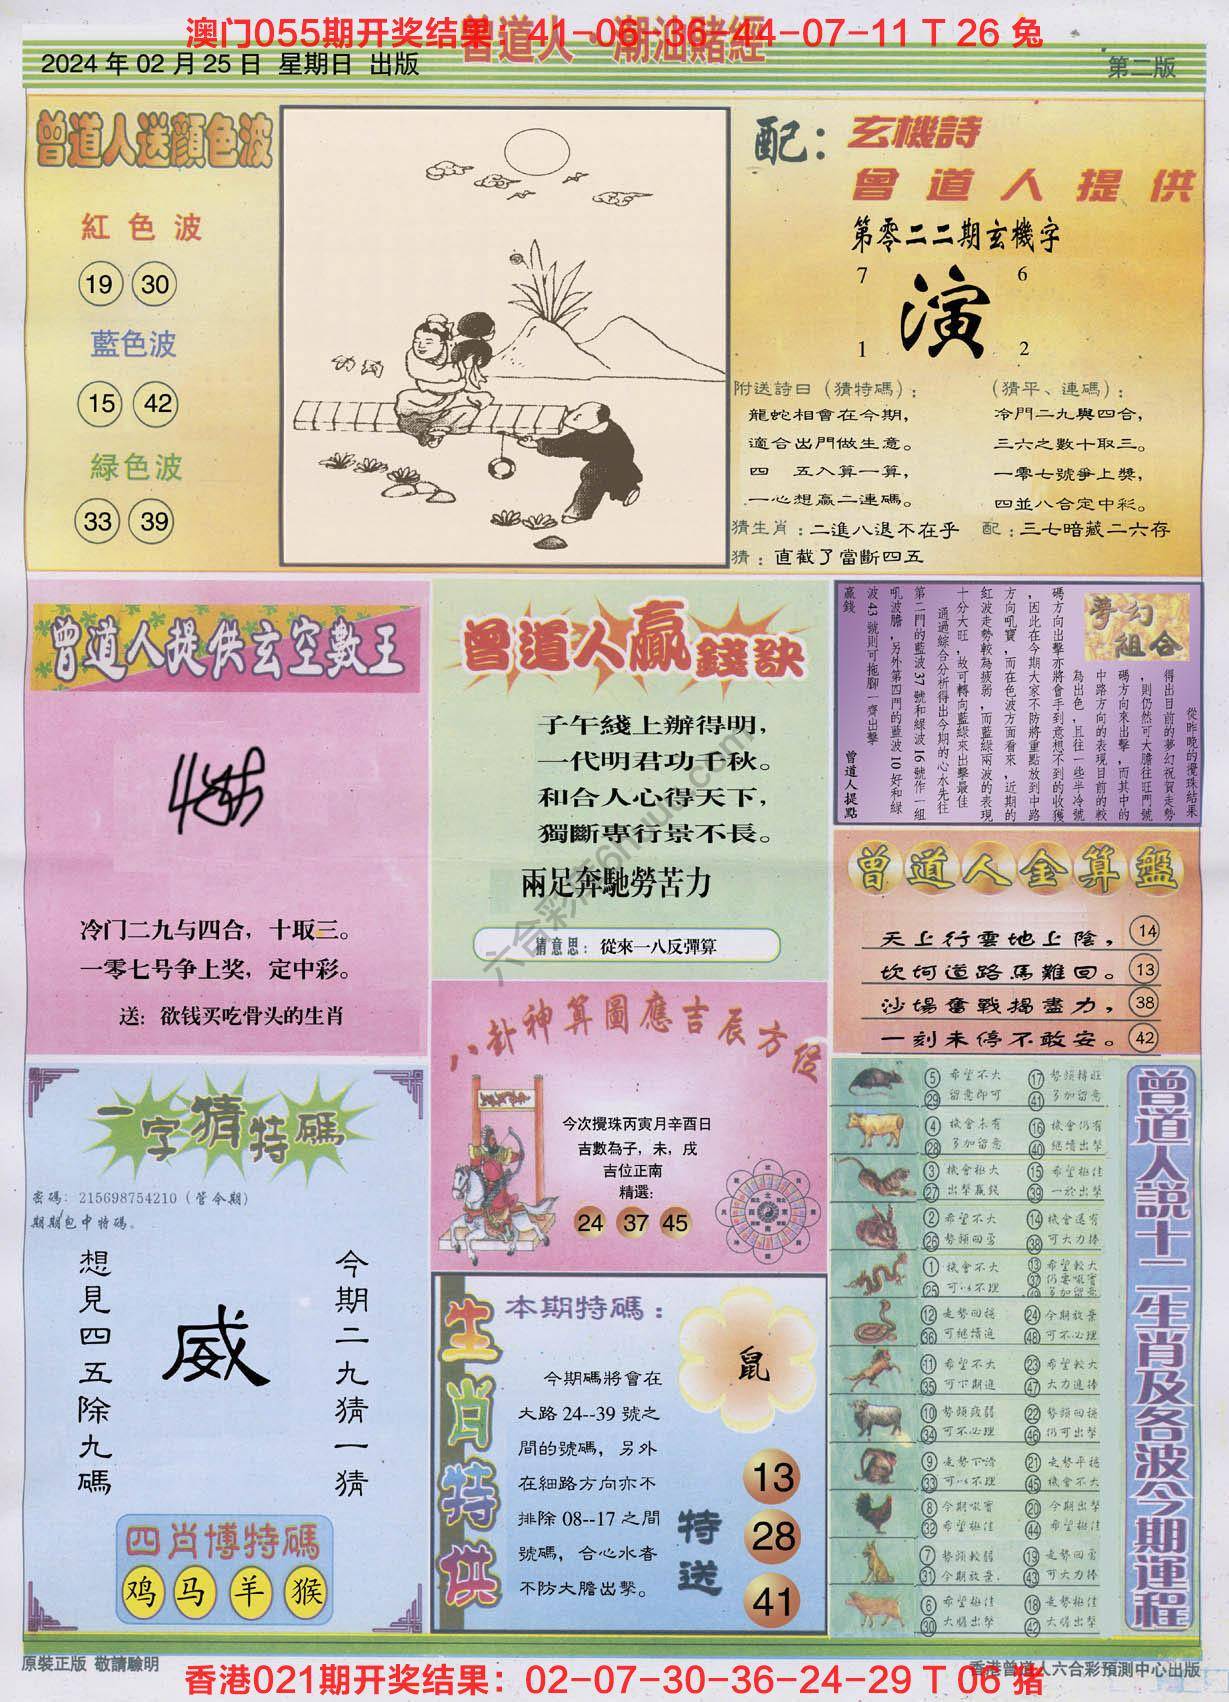 澳门055期开奖结果：41-06-36-44-07-11 T 26 兔
曾道人·潮汕賭經
2024 年 02 月 25 日 星期日 出版
第二版
曾道人送顔色波
紅色波
19 30
藍色波
15 42
緑色波
33 39
配：
玄機詩
曾道人提供
第零二二期玄機字
7 6
演
1 2
附送詩日（猜特碼）：
龍蛇相會在今期，
適合出門做生意。
四 五入算一算，
一心想贏二連碼。
（猜平、連碼）：
冷門二九與四合，
三六之數十取三。
一零七號爭上獎，
四並八合定中彩。
猜生肖：二進八退不在乎 配：三七暗藏二六存
猜：直截了當斷四五
曾道人提供玄空數王
冷门二九与四合，十取三。
一零七号争上奖，定中彩。
送：欲钱买吃骨头的生肖
曾道人贏錢訣
子午綫上辦得明，
一代明君功千秋。
和合人心得天下，
獨斷專行景不長。
兩足奔馳勞苦力
猜意思：從來一八反彈算
夢幻組合
從昨晚的攪珠結果
得出目前的夢幻祝賀走勢
，則仍然可大膽往旺門號
碼方向來出擊，而其中的
中路方向的表現目前的較
為出色，且往一些半冷號
碼方向出擊亦將會手到意想不到的收獲
，因此在今期大家不防將重點放到中路
方向吼寶，而在色波方面看來，近期的
紅波走勢較為疲弱，而藍綠兩波的表現
十分大旺，故可轉向藍綠來出擊最佳
通過綜合分析得出今期的心水先往
第二門的藍波37號和綠波16號作一組
吼波膽，另外第四門的藍波10好和綠
波43號則可拖腳一齊出擊
贏錢
曾道人提點
曾道人金算盤
天上行雲地上陰， 14
坎坷道路馬難回。 13
沙場奮戰揭盡力， 38
一刻未停不敢安。 42
八卦神算圖應吉辰方位
今次攪珠丙寅月辛酉日
吉數為子，未，戌
吉位正南
精選:
24 37 45
一字猜特碼
密碼: 215698754210 (管今期)
期期包中特碼。
想見四五除九碼
威
今期二九猜一猜
四肖博特碼
鸡 马 羊 猴
生肖特供
本期特碼：
鼠
今期碼將會在
大路 24--39 號之
間的號碼，另外
在細路方向亦不
排除 08--17 之間
號碼，合心水者
不防大膽出擊。
特送
13
28
41
曾道人説十二生肖及各波今期運程
5 希望不大 17 勢頭轉旺
29 留意即可 41 多加留意
4 機會未有 16 機會仍有
28 多加留意 40 繼續出擊
3 機會極大 15 希望極佳
27 出擊贏錢 39 一於出擊
2 希望不大 14 機會還有
26 勢頭回勇 38 可大力捧
1 機會不大 13 希望較大
25 可以不理 37 仍要吼實
49 多加留意
12 走勢回穩 24 今期放棄
36 可繼續追 48 可不必理
11 希望不大 23 希望較大
35 可下期追 47 大力追捧
10 勢頭疲弱 22 勢頭回穩
34 可不必理 46 仍可出擊
9 走勢下滑 21 走勢平穩
33 可以不理 45 機會不大
8 今期吼實 20 今期出擊
32 希望極佳 44 希望極佳
7 勢頭較弱 19 走勢回勇
31 今期放棄. 43 可大力捧
6 希望極佳 18 走勢極佳
30 大膽出擊 42 大膽出擊
原裝正版 敬請驗明
香港曾道人六合彩預測中心出版
香港021期开奖结果：02-07-30-36-24-29 T 06 猪